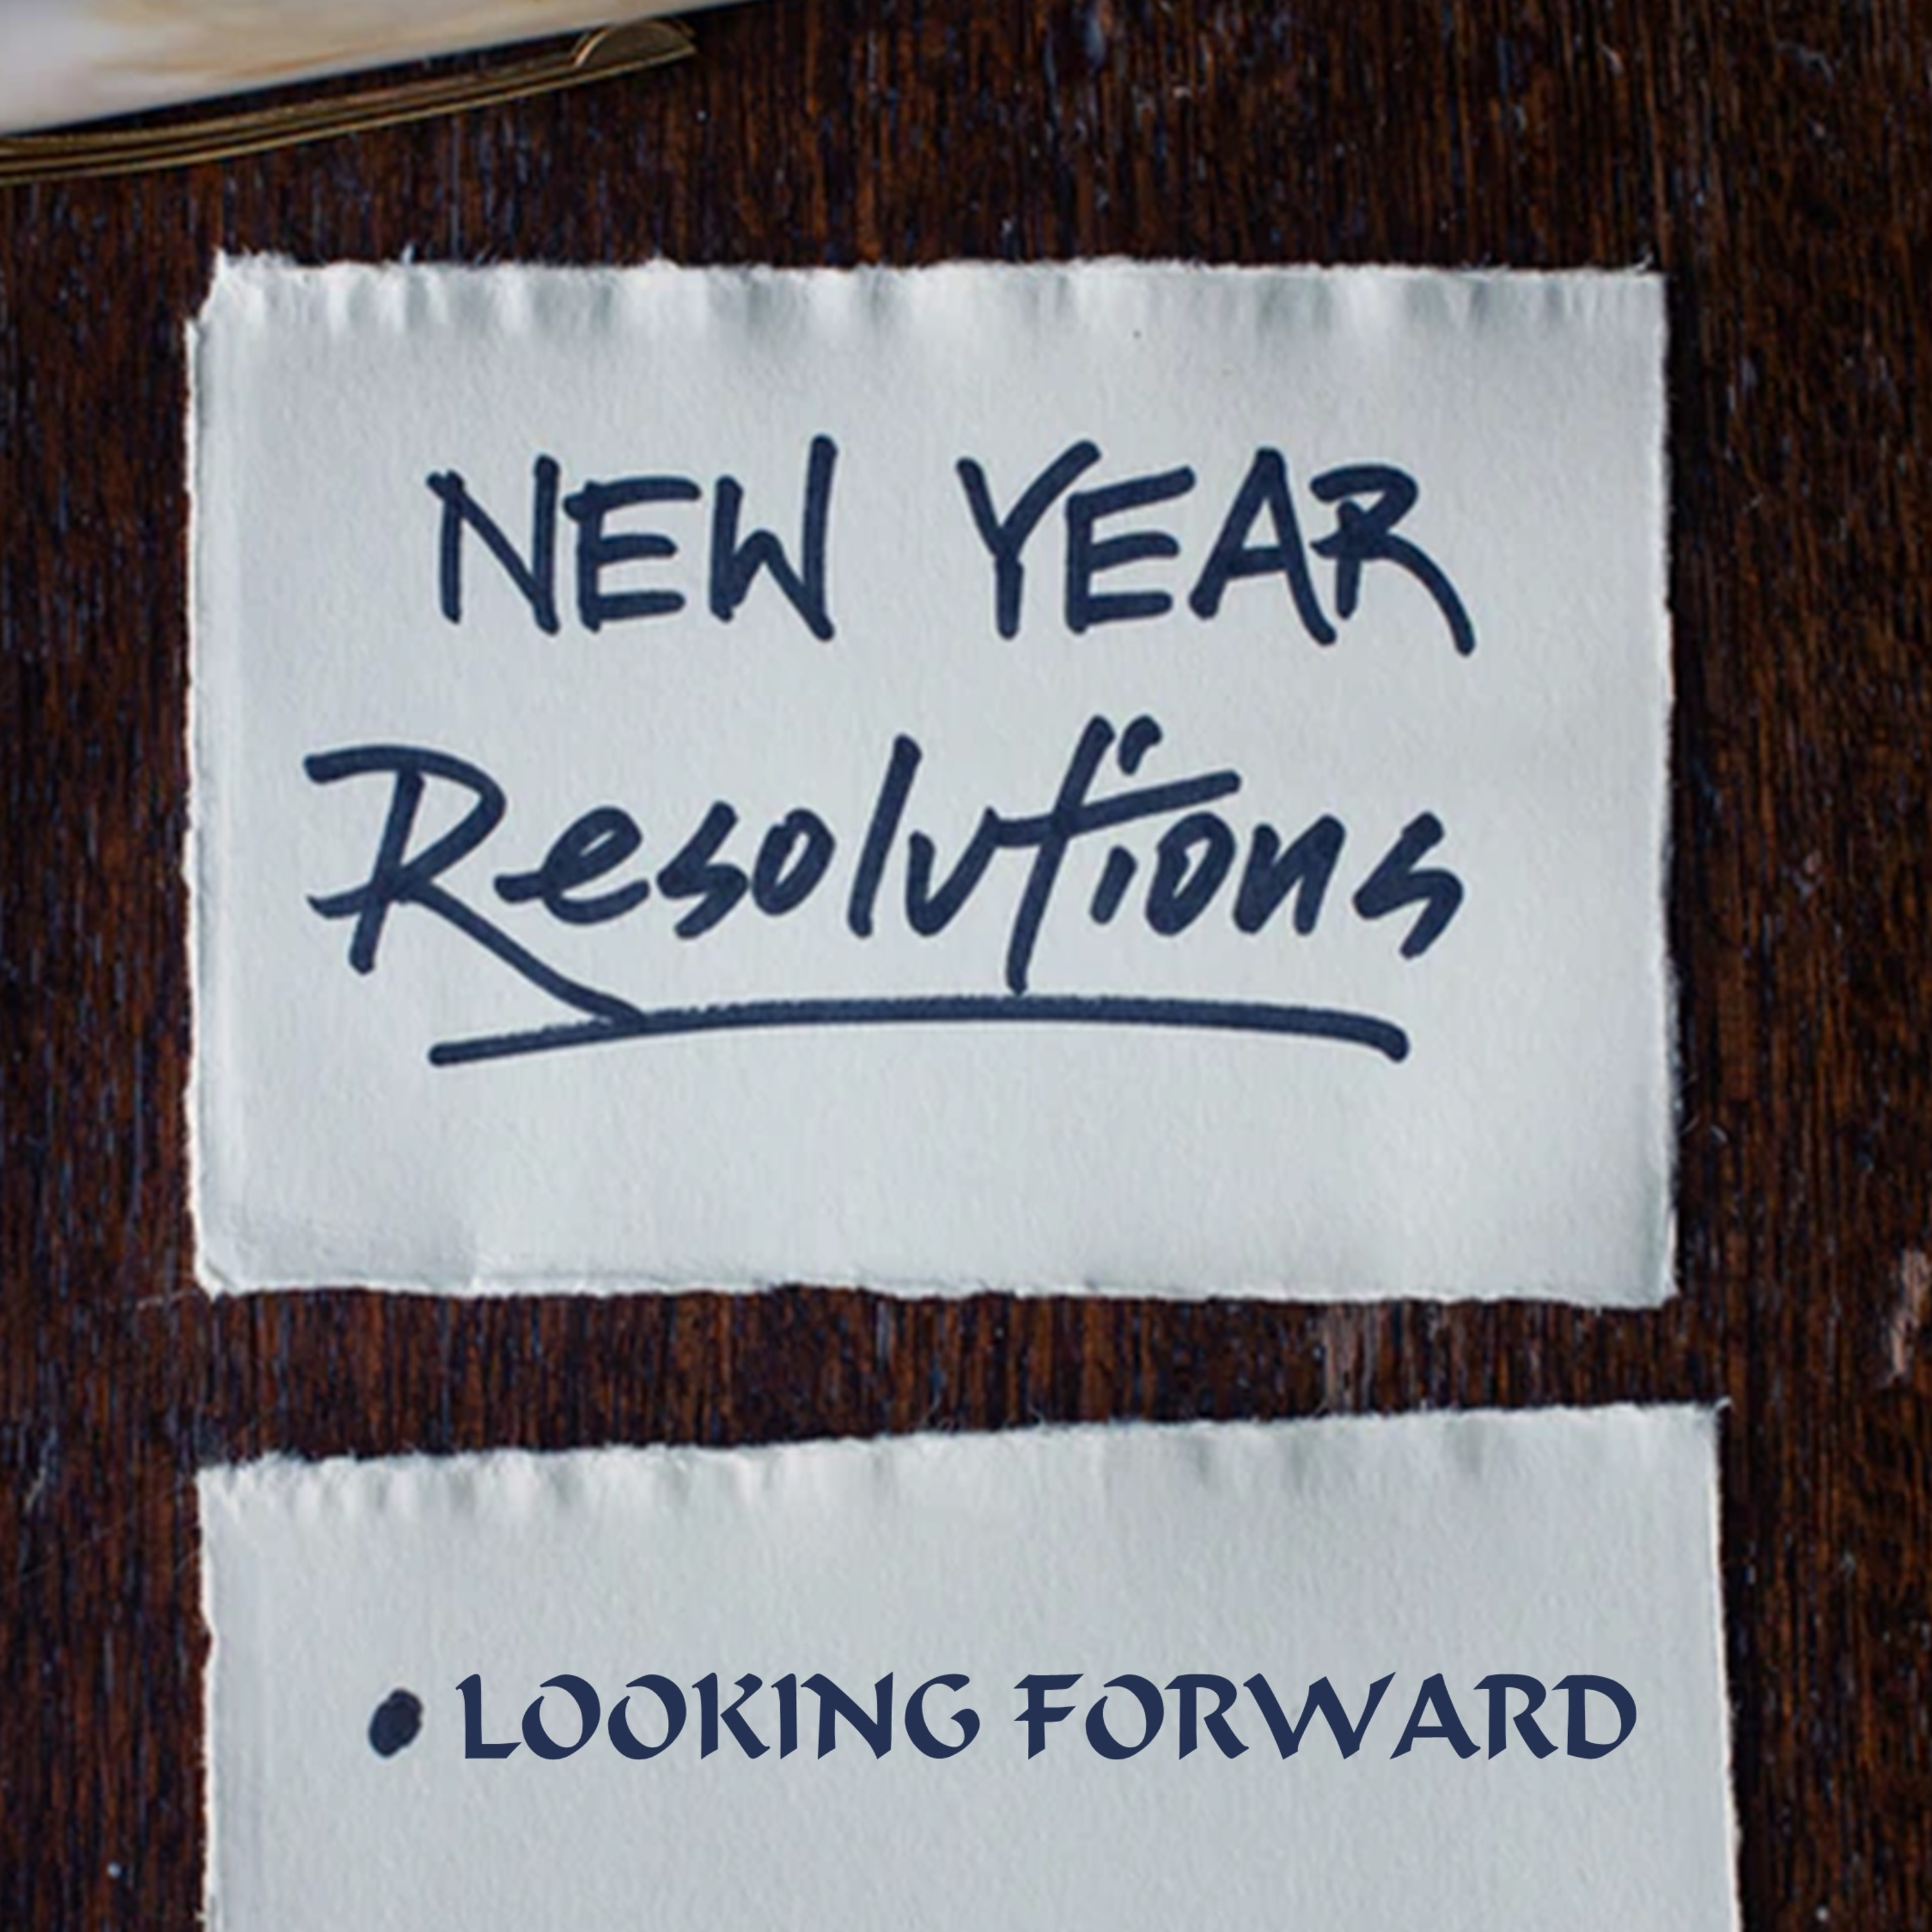 NEW YEAR
Resolutions
• LOOKING FORWARD